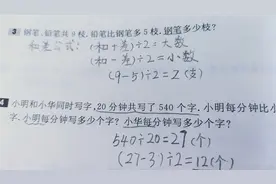 3 钢笔、铅笔共9枝,铅笔比钢笔多5枝,钢笔多少枝?
和差公式:(和+差)÷2=大数
(和-差)÷2=小数
(9-5)÷2=2(支)
4 小明和小华同时写字,20分钟共写了540个字.小明每分钟比小
字.小明每分钟写多少个字?小华每分钟写多少个字?
540÷20=27(个)
(27-3)÷2=12(个)